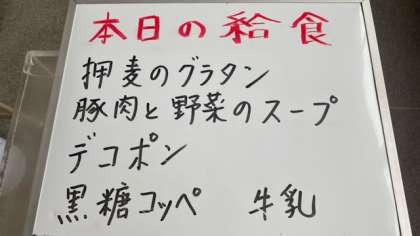 本日の給食
押麦のグラタン
豚肉と野菜のスープ
デコポン
黒糖コッペ 牛乳